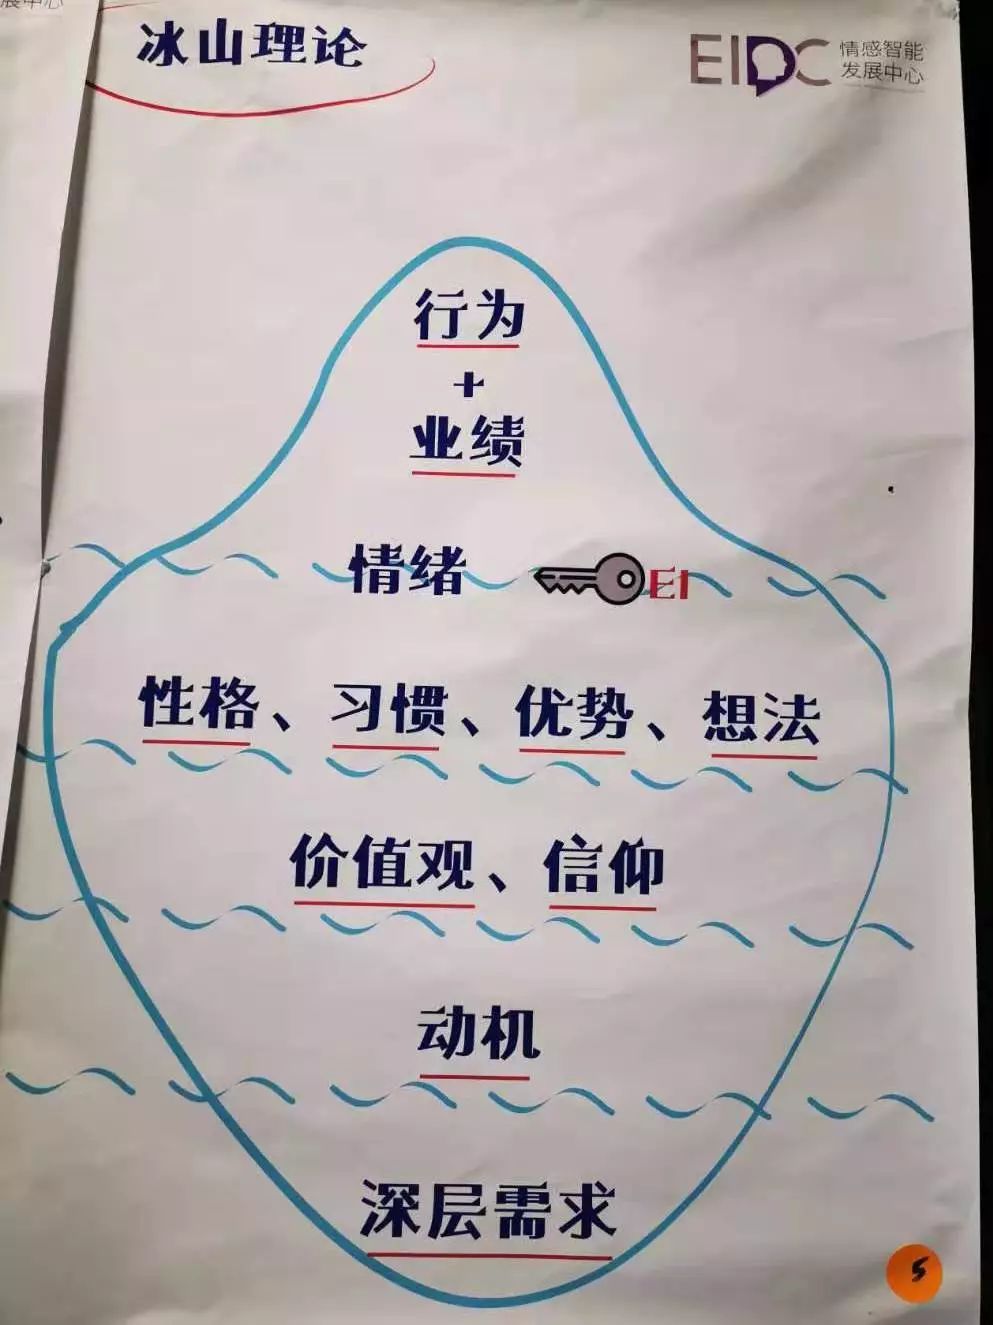 展中心
冰山理论
EIDC 情感智能
发展中心
行为
+
业绩
情绪 EI
性格、习惯、优势、想法
价值观、信仰
动机
深层需求
5